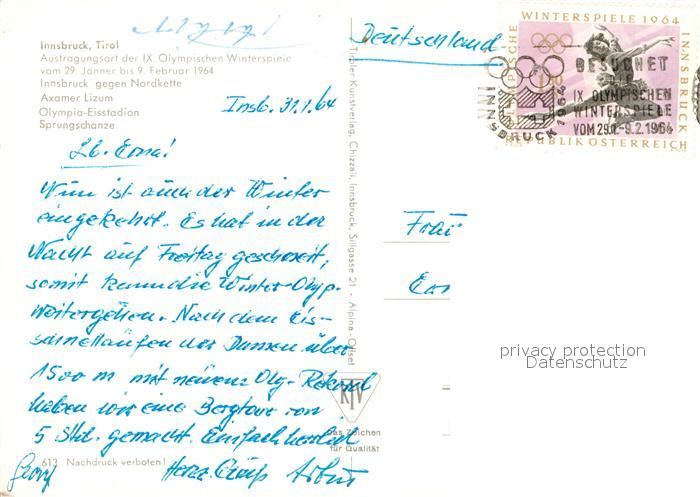 Innsbruck, Tirol
Austragungsort der IX. Olympischen Winterspiele
vom 29. Jänner bis 9. Februar 1964
Innsbruck gegen Nordkette
Axamer Lizum
Olympia-Eisstadion
Sprungschanze
Insb. 31.1.64
Lb. Erna!
Nun ist auch der Winter
eingekehrt. Es hat in der
Nacht auf Freitag geschneit,
somit kann die Winter-Olymp.
weitergehen. Nach dem Eis-
schnellaufen der Damen über
1500 m mit neuem Oly-Rekord
haben wir eine Bergtour von
5 Std. gemacht. Einfach herrlich
Herzl. Grüße
Georg
613 Nachdruck verboten!
Tiroler Kunstverlag, Chizzali, Innsbruck, Sillgasse 21 - Alpina-Offset
KTV
Das Zeichen
für Qualität
Deutschland
Frau
OLYMPISCHE WINTERSPIELE 1964 INNSBRUCK
REPUBLIK ÖSTERREICH
INNSBRUCK 1964
BESUCHET
IX. OLYMPISCHEN
WINTERSPIELE
VOM 29.1.-9.2.1964
privacy protection
Datenschutz